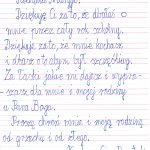 Dziękuję Ci za to, że dbałaś o
mnie przez cały rok szkolny.
Dziękuję, za to, że mnie kochasz
i dbasz o to abym był szczęśliwy.
Za łaski jakie mi dajesz i
dla mnie i mojej rodziny
u Pana Boga.
Proszę chroń mnie i moją rodzinę
od grzechu i od złego.